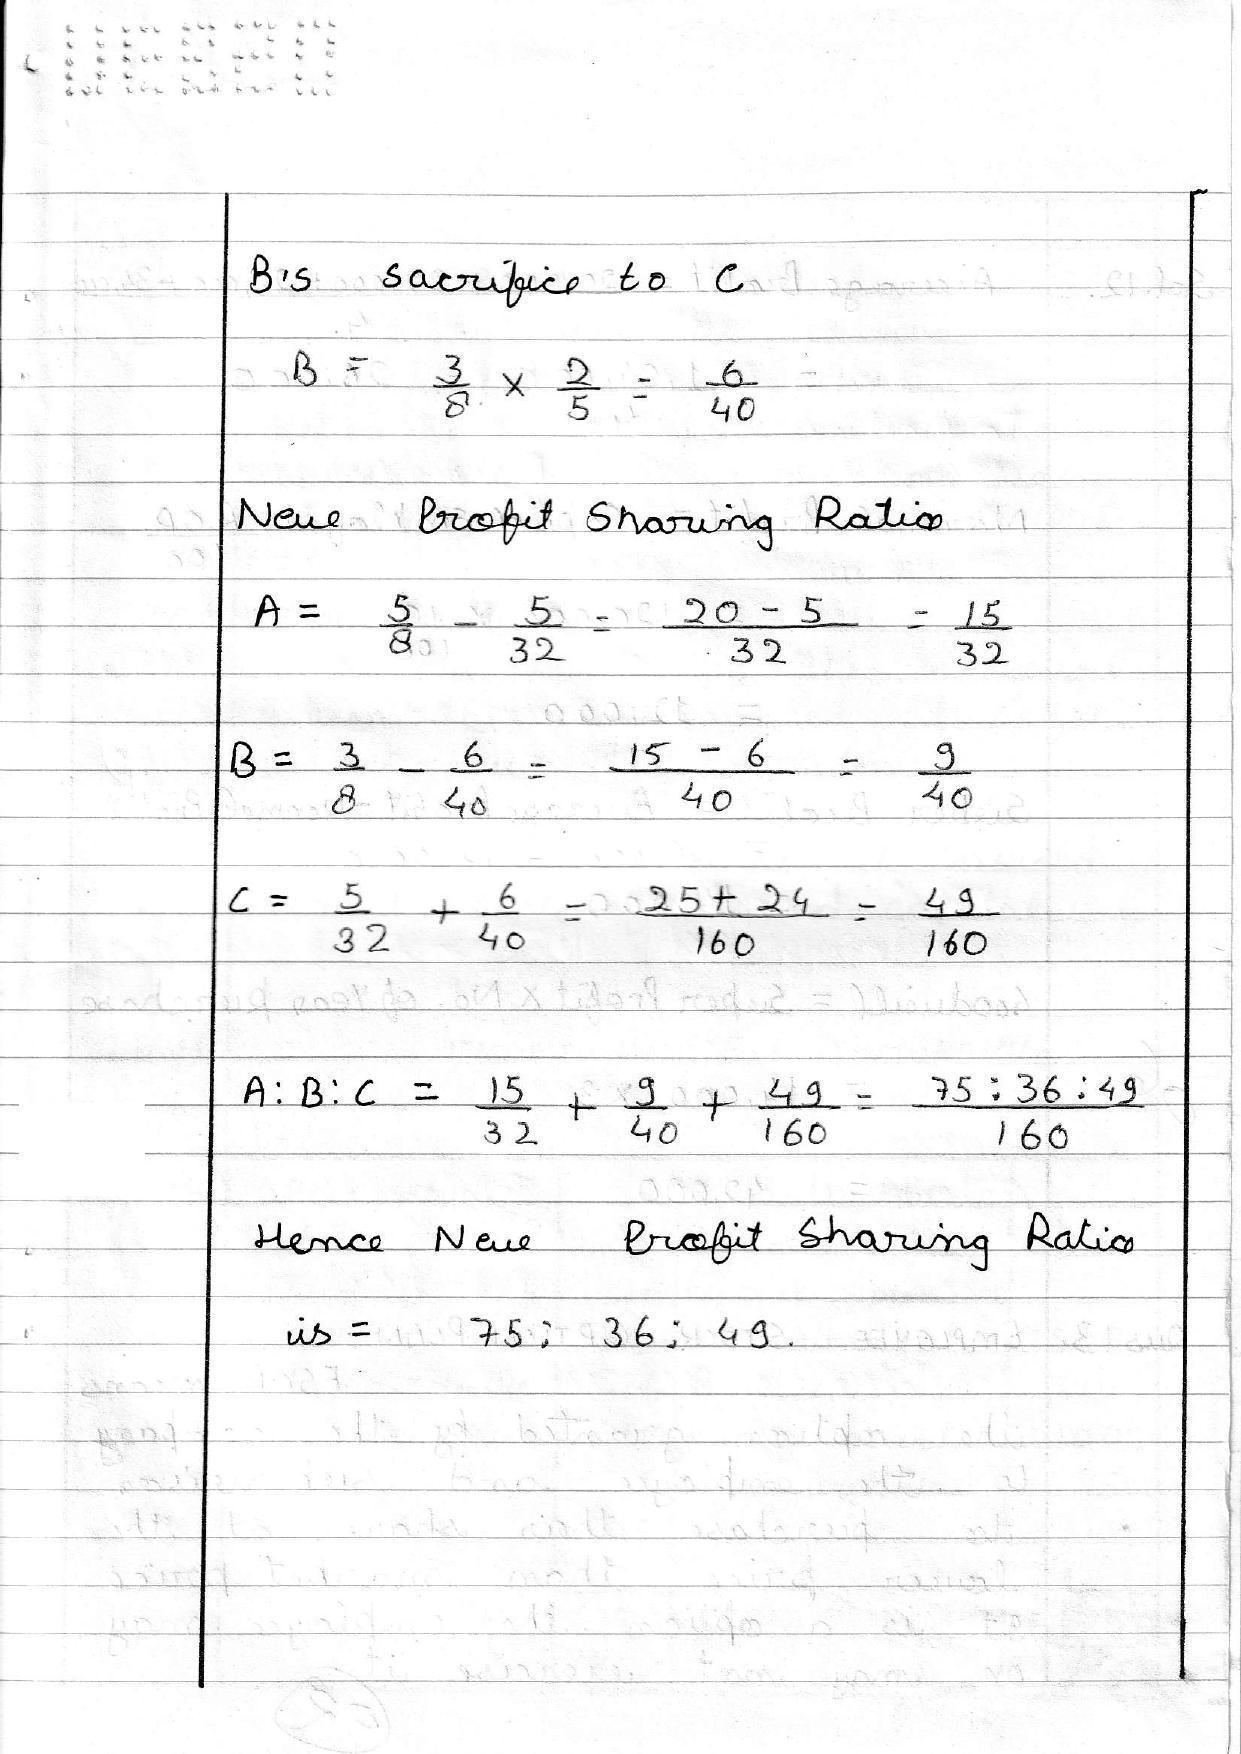 B's sacrifice to C
B = 3/8 × 2/5 = 6/40
New Profit Sharing Ratio
A = 5/8 - 5/32 = 20 - 5/32 = 15/32
B = 3/8 - 6/40 = 15 - 6/40 = 9/40
C = 5/32 + 6/40 = 25 + 24/160 = 49/160
A : B : C = 15/32 + 9/40 + 49/160 = 75 : 36 : 49/160
Hence New Profit Sharing Ratio
is = 75 : 36 : 49.